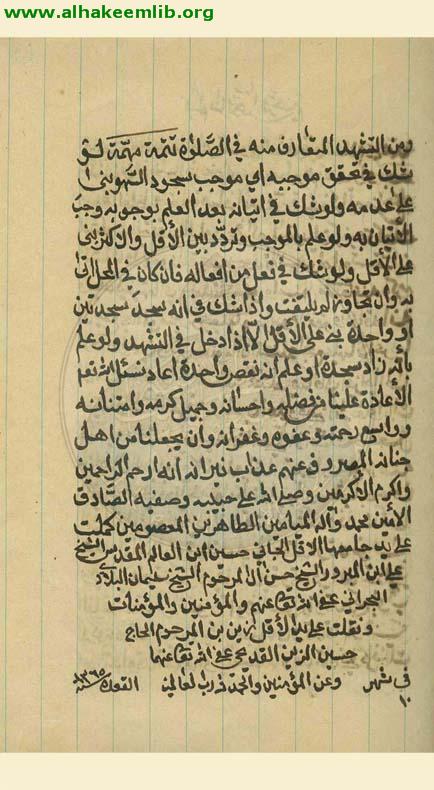 www.alhakeemlib.org
ومن التشهد المتعارف منه في الصلوة تتمة مهمة لو
شك في تحقق موجبه اي موجب سجود السهو بنى
على عدمه ولو شك في اتيانه بعد العلم بوجوبه وجب
الاتيان به ولو علم بالموجب وتردد بين الاقل والاكثر بنى
على الاقل ولو شك في فعل من افعاله فان كان في المحل اتى
به وان تجاوز لم يلتفت واذا شك في انه سجد سجدتين
او واحدة بنى على الاقل الا اذا دخل في التشهد ولو علم
بانه زاد سجدة او علم انه نقص واحدة اعاد نسئل الله تعم
الاعادة علينا من فضله واحسانه وجميل كرمه وامتنانه
وواسع رحمته وعفوه وغفرانه وان يجعلنا من اهل
جنانه عذاب نيرانه انه ارحم الراحمين
واكرم الاكرمين وصلى الله على حبيبه وصفيه الصادق
الامين محمد وآله الميامين الطاهرين المعصومين كملت
على يد جامعها الاقل الجاني حسين ابن العالم المقدس الشيخ
علي ابن المبرور الشيخ حسن المرحوم الشيخ سليمان البلادي
البحراني عفى الله تعا عنهم والمؤمنين والمؤمنات
ونقلت على يد الاقل بن المرحوم الحاج
حسين الزين القديحي عفى الله تعا عنهما
وعن المؤمنين والحمد لله رب العالمين
في شهر القعدة سنة ١٣٦٥
١٠